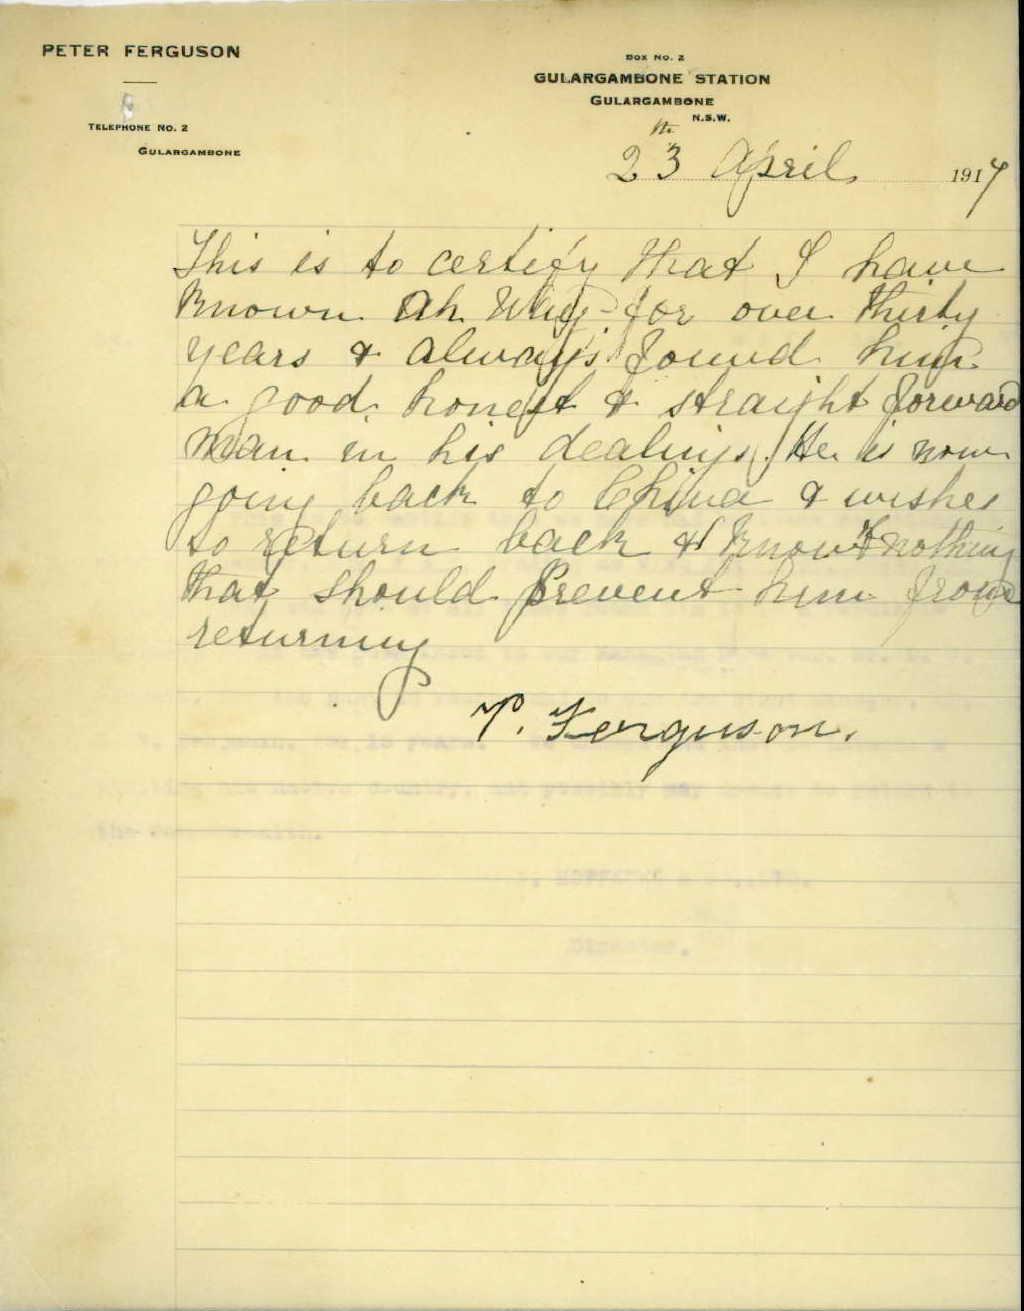 PETER FERGUSON
TELEPHONE NO. 2
GULARGAMBONE
BOX NO. 2
GULARGAMBONE STATION
GULARGAMBONE
N.S.W.
23th April 1917
This is to certify that I have
known Ah Way for over thirty
years & always found him
a good honest & straight forward
man in his dealings He is now
going back to China & wishes
to return back & I know of nothing
that should prevent him from
returning
P. Ferguson.
Director.